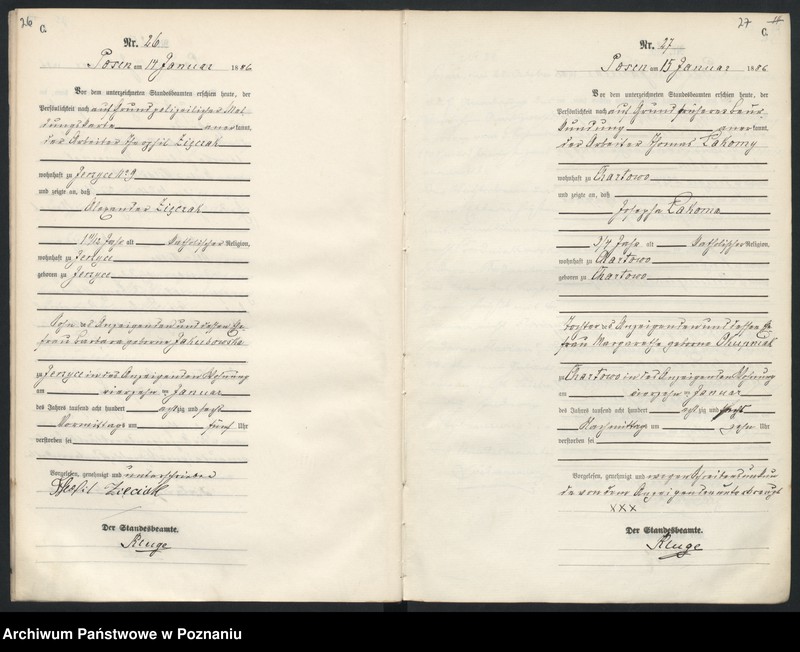 26
C.
Nr. 26
Posen am 14 Januar 1886
Vor dem unterzeichneten Standesbeamten erschien heute, der
Persönlichkeit nach auf Grund polizeilicher Mel
dungskarte anerkannt,
der Arbeiter Theophil Zięciak
wohnhaft zu Jerzyce No 9
und zeigte an, daß
Alexander Zięciak
1 1/12 Jahr alt katholischer Religion,
wohnhaft zu Jerzyce
geboren zu Jerzyce
Sohn des Anzeigenden und dessen Ehe
frau Barbara geborne Jakubowska
zu Jerzyce in des Anzeigenden Wohnung
am vierzehn ten Januar
des Jahres tausend acht hundert achtzig und sechs
Vormittags um fünf Uhr
verstorben sei
Vorgelesen, genehmigt und unterschrieben
Theofil Zieciak
Der Standesbeamte.
Kluge
27
C.
Nr. 27
Posen am 15 Januar 1886
Vor dem unterzeichneten Standesbeamten erschien heute, der
Persönlichkeit nach auf Grund früherer Beur
kundung anerkannt,
der Arbeiter Thomas Lakomy
wohnhaft zu Chartowo
und zeigte an, daß
Josepha Lakoma
Jahr alt katholischer Religion,
wohnhaft zu Chartowo
geboren zu Chartowo
Tochter des Anzeigenden und dessen Ehe
frau Margarethe geborne
zu Chartowo in des Anzeigenden Wohnung
am vierzehn ten Januar
des Jahres tausend acht hundert achtzig und sechs
Nachmittags um zehn Uhr
verstorben sei
Vorgelesen, genehmigt und wegen Schreibensunkun
de von dem Anzeigenden unterkreuzt
XXX
Der Standesbeamte.
Kluge
Archiwum Państwowe w Poznaniu